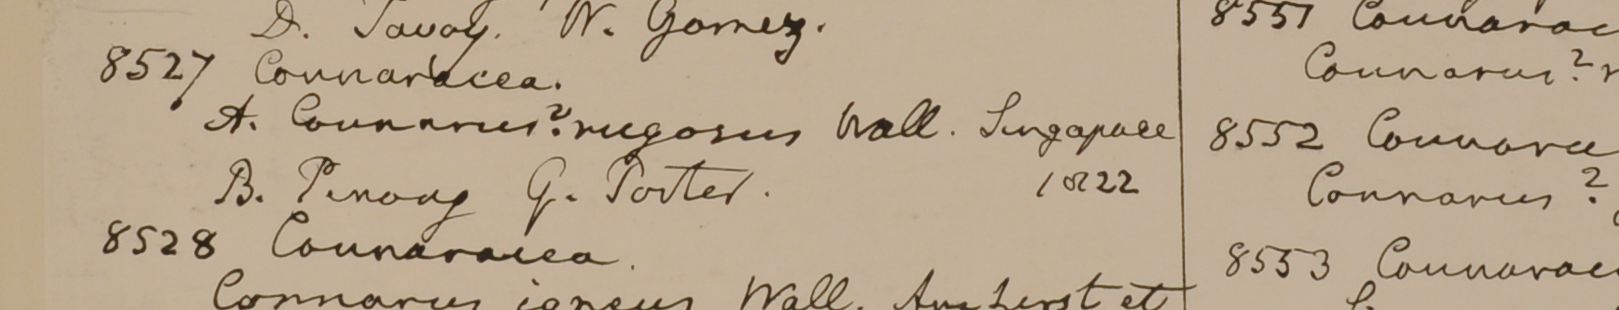 D. Tavoy. W. Gomez.
8527 Connaracea.
A. Connarus? rugosus Wall. Singapore
B. Penang G. Porter. 1822
8528 Connaracea.
Connarus igneus Wall. Amherst et
8551 Connarac
Connarus?
8552 Connarac
Connarus?
8553 Connarac